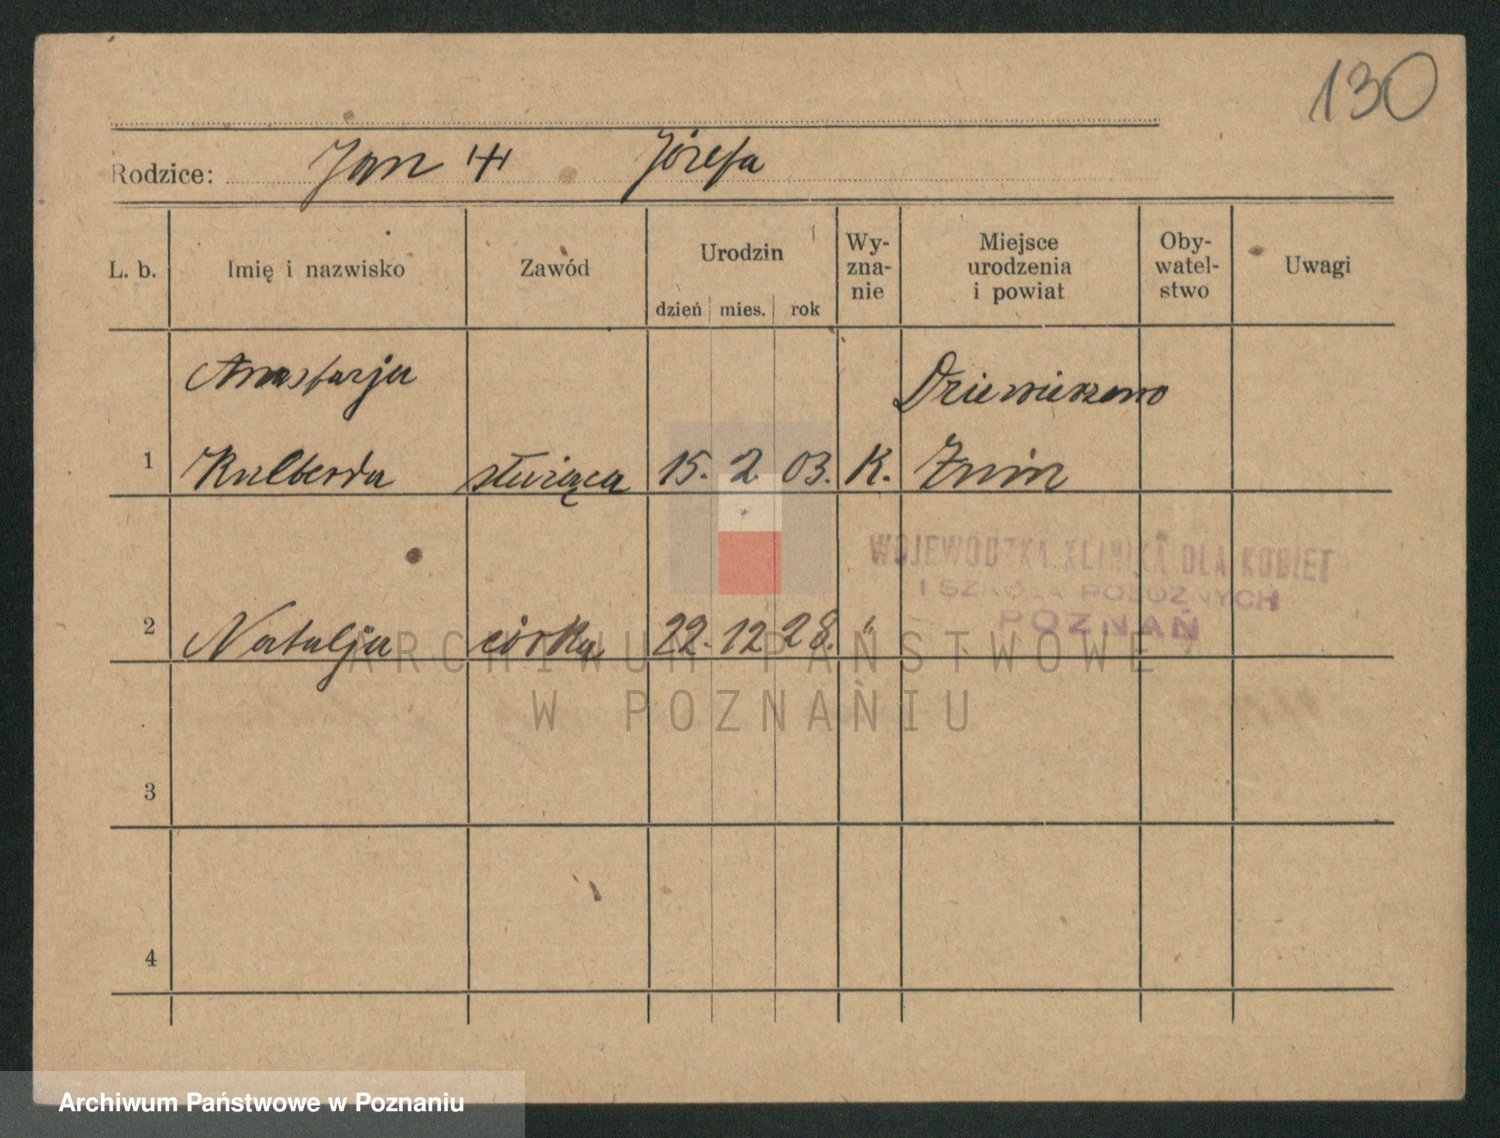 130
Rodzice: Jan Józefa
L. b. Imię i nazwisko Zawód Urodzin dzień mies. rok Wy-zna-nie Miejsce urodzenia i powiat Oby-watel-stwo Uwagi
Anastazja Dziewierzewo
1 Kulberda służąca 15. 2. 03. K. Żnin
WOJEWÓDZKA KLINIKA DLA KOBIET
I SZKOŁA POŁOŻNYCH
POZNAŃ
2 Natalja córka 22. 12 28. "
ARCHIWUM PAŃSTWOWE
W POZNANIU
3
4
Archiwum Państwowe w Poznaniu